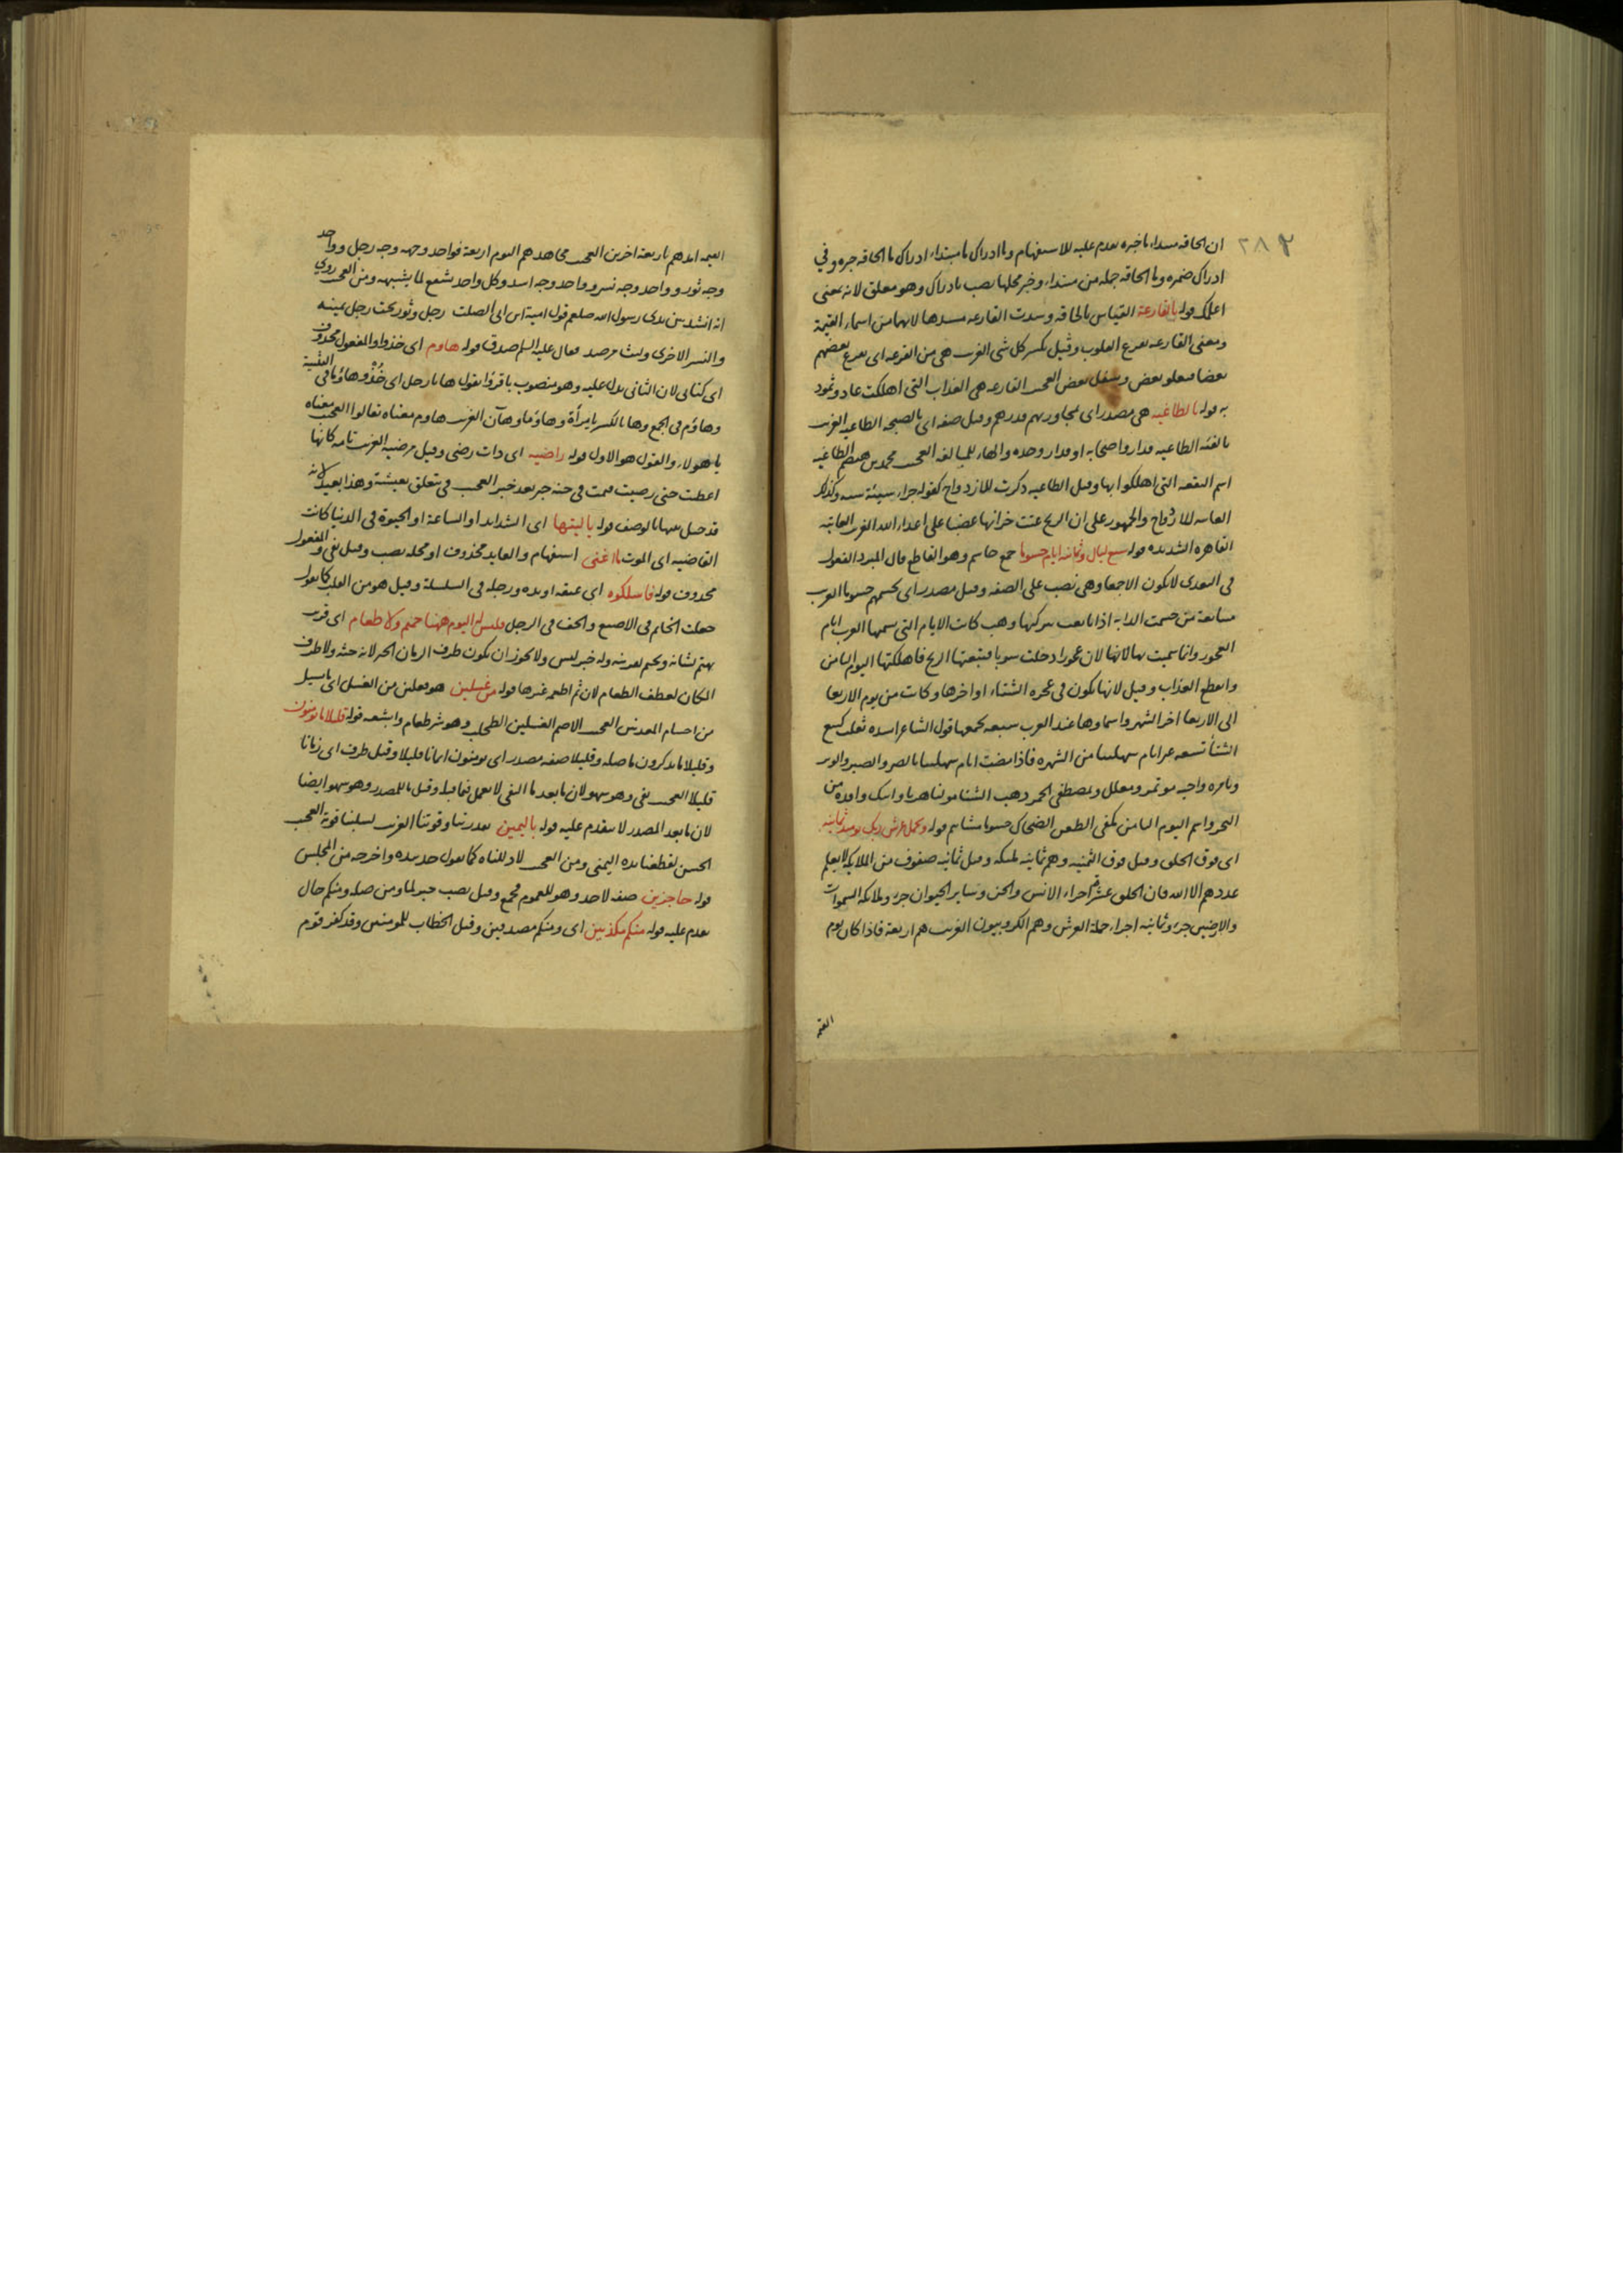 ٢٨٢
ان الحاقه مبتداء ما خبره تقدم عليه للاستفهام وما ادراك ما مبتداء ادراك ما الحاقه خبره وفي
ادراك ضمره وما الحاقه جمله من مبتداء وخبر محلها نصب بادراك وهو معلق لانه بمعنى
اعلمك قوله بالقارعة القياس بالحاقه وسدت القارعه مسدها لانهما من اسماء القيمة
ومعنى القارعه تقرع القلوب وقيل تكسر كل شى الغريب هى من القرعه اى تقرع بعضهم
بعضا فيعلو بعض ويسفل بعض العجيب القارعه هى العذاب التى اهلكت عاد وثمود
به قوله بالطاغيه هى مصدر اى لمجاوزتهم قدرهم وقيل صفه اى بالصيحه الطاغيه الغريب
بالفئه الطاغيه قدار واصحابه او قدار وحده والهاء للمبالغه العجيب محمد بن هيصم الطاغيه
اسم البقعه التى اهلكوا بها وقيل الطاغيه ذكرت للازدواج كقوله جزاء سيئة سيئه وكذلك
العاتيه للازدواج والجمهور على ان الريح عتت خزانها غضبا على اعداء الله الغريب العاتيه
القاهره الشديده قوله سبع ليال وثمانيه ايام حسوما جمع حاسم وهو القاطع قال المبرد الفعول
فى التعدى لا يكون الا جمعا وهى نصب على الصفه وقيل مصدر اى تحسمهم حسوما الغريب
متتابعة من حسمت الدابه اذا تابعت بين كيها وهب كانت الايام التى تسميها العرب ايام
العجوز وانما سميت بها لانها لان عجوزا دخلت سربا فتبعتها الريح فاهلكتها اليوم الثامن
وانقطع العذاب وقيل لانها تكون فى عجزه الشتاء اواخرها وكانت من يوم الاربعا
الى الاربعا اخر الشهر واسماوها عند العرب سبعه يجمعها قول الشاعر انشده ثعلب كسع
الشتأ تسعه غبر ايام شهلتنا من الشهره فاذا مضت ايام شهلتنا بالصن والصنبر والوبر
وبامره واخيه موتمر ومعلل وبمصطفى الجمر ذهب الشتا موليا هربا واتتك واقده من
النجر واسم اليوم الثامن مكفى الظعن الضحاك حسوما مشائيم قوله ويحمل عرش ربك يومئذ ثمانيه
اى فوق الخلق وقيل فوق الثمنيه وهم ثمانيه ملئكه وقيل ثمانيه صفوف من الملائكه لا يعلم
عددهم الا الله فان الخلق عشرة اجزاء الانس والجن وساير الحيوان جزء وملائكه السموات
والارضين جزء وثمانيه اجزاء حملة العرش وهم الكروبيون الغريب هم اربعة فاذا كان يوم
القيمه
القيمه ايدهم باربعة اخرين العجيب مجاهد هم اليوم اربعة فواحد وجهه وجه رجل وواحد
وجه ثور وواحد وجه نسر وواحد وجه اسد وكل واحد يشفع لما يشبهه ومن العجيب روي
انه انشد بين يدى رسول الله صلعم قول امية ابن ابى الصلت رجل وثور تحت رجل يمينه
والنسر الاخرى وليث مرصد فقال عليه السلم صدق قوله هاوم اى خذوا والمفعول محذوف
اى كتابى لان الثانى يدل عليه وهو منصوب باقرؤا تقول ها يا رجل اى خُذْ وهاؤما فى التثنية
وهاؤم فى الجمع وها بالكسر يا مرأة وهاؤما وهآن الغريب هاوم معناه تعالوا العجيب معناه
يا هولاء والقول هو الاول قوله راضيه اى ذات رضى وقيل مرضيه الغريب تامه كانها
اعطت حتى رضيت فيمت فى جنه خبر بعد خبر العجيب فى يتعلق بعيشة وهذا بعيد لانه
قد حيل بينهما بالوصف قوله ياليتها اى الشدايد او الساعة او الحيوة فى الدنيا كانت
القاضيه اى الموت ما اغنى استفهام والعايد محذوف او محله نصب وقيل نفى والمفعول
محذوف قوله فاسلكوه اى عنقه او يده ورجله فى السلسلة وقيل هو من القلب كما يقول
جعلت الخاتم فى الاصبع والخف فى الرجل فليس له اليوم ههنا حميم ولا طعام اى قريب
يهتم بشانه ويحيم لعذابه وله خبر ليس ولا يجوز ان يكون ظرف الزمان الخبر لانه جثه ولا ظرف
المكان لعطف الطعام لان ثم اطعمه غيرها قوله من غسلين هو فعلين من الغسل اى ما يسيل
من اجسام المعذبين العجيب الاصم الغسلين الطحلب وهو شر طعام وابشعه قوله قليلا ما تومنون
وقليلا ما تذكرون ما صله وقليلا صفه مصدر اى تومنون ايمانا قليلا وقيل ظرف اى زمانا
قليلا العجيب نفى وهو سهو لان ما بعد ما النفى لا يعمل فيما قبلها وقيل ما للمصدر وهو سهو ايضا
لان ما بعد المصدر لا يتقدم عليه قوله باليمين بقدرتنا وقوتنا الغريب لسلبنا قوته العجيب
الحسن لقطعنا يده اليمنى ومن العجيب لاذللناه كما تقول خذ بيده واخرجه من المجلس
قوله حاجزين صفه لاحد وهو للعموم فجمع وقيل نصب خبر لما ومن صله ومنكم حال
تقدم عليه قوله منكم مكذبين اى ومنكم مصدقين وقيل الخطاب للمومنين وقد كفر قوم